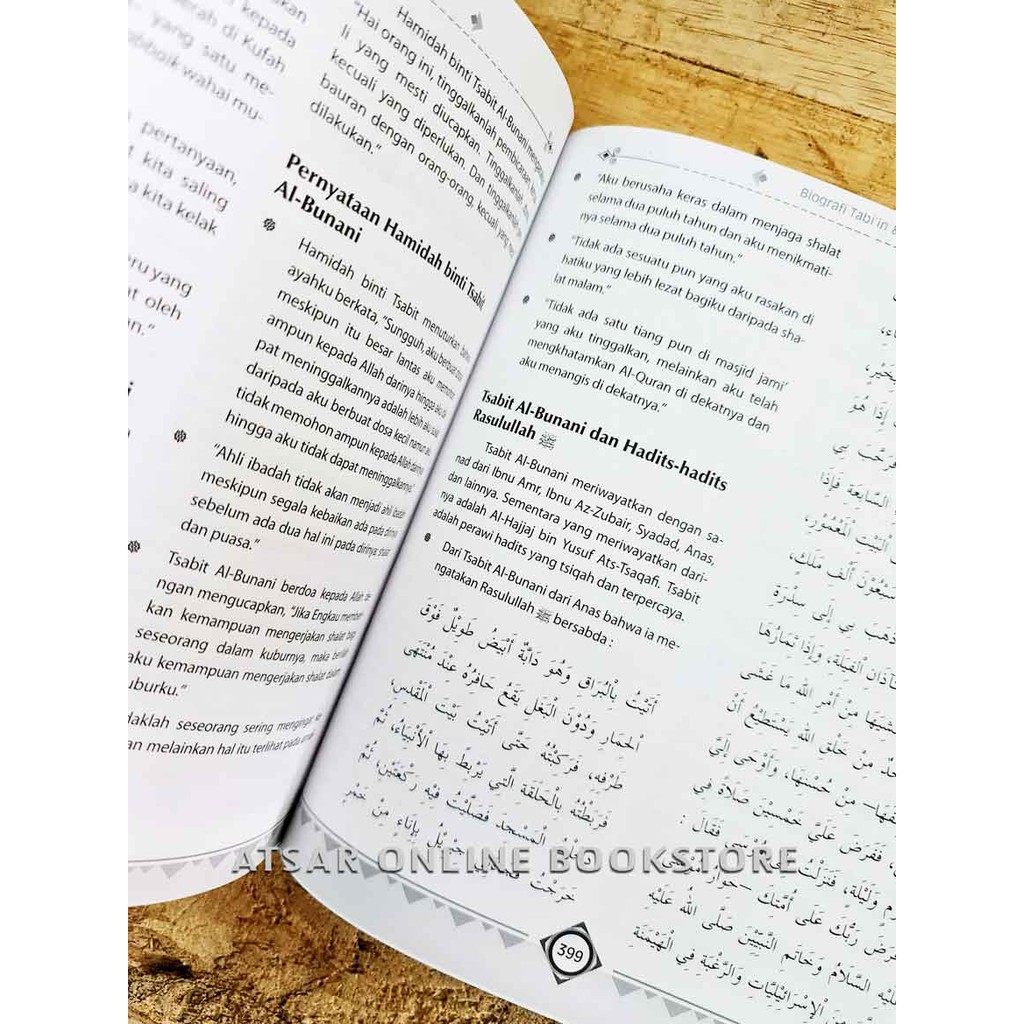 akan
kepada
erah di Kufah
yang satu me-
wahai mu-
pertanyaan,
kita saling
a kita kelak
yang
oleh
Hamidah binti Tsabit Al-Bunani
"Hai orang ini, tinggalkanlah pembicaraan
li yang mesti diucapkan. Tinggalkanlah
kecuali yang diperlukan. Dan tinggalkanlah
bauran dengan orang-orang, kecuali yang
dilakukan."
Pernyataan Hamidah binti Tsabit
Al-Bunani
Hamidah binti Tsabit menuturkan
ayahku berkata, "Sungguh, aku berbuat
meskipun itu besar lantas aku memohon
ampun kepada Allah darinya hingga aku
pat meninggalkannya adalah lebih aku
daripada aku berbuat dosa kecil namun aku
tidak memohon ampun kepada Allah darinya
hingga aku tidak dapat meninggalkannya."
"Ahli ibadah tidak akan menjadi ahli ibadah
meskipun segala kebaikan ada pada dirinya
sebelum ada dua hal ini pada dirinya: shalat
dan puasa."
Tsabit Al-Bunani berdoa kepada Allah de-
ngan mengucapkan, "Jika Engkau
kan kemampuan mengerjakan shalat bagi
seseorang dalam kuburnya, maka
aku kemampuan mengerjakan shalat dalam
uburku."
daklah seseorang sering mengingat
an melainkan hal itu terlihat pada
Biografi Tabi'in
"Aku berusaha keras dalam menjaga shalat
selama dua puluh tahun dan aku menikmati-
nya selama dua puluh tahun."
"Tidak ada sesuatu pun yang aku rasakan di
hatiku yang lebih lezat bagiku daripada sha-
lat malam."
"Tidak ada satu tiang pun di masjid jami'
yang aku tinggalkan, melainkan aku telah
mengkhatamkan Al-Quran di dekatnya dan
aku menangis di dekatnya."
Tsabit Al-Bunani dan Hadits-hadits
Rasulullah ﷺ
Tsabit Al-Bunani meriwayatkan dengan sa-
nad dari Ibnu Amr, Ibnu Az-Zubair, Syadad, Anas,
dan lainnya. Sementara yang meriwayatkan dari-
nya adalah Al-Hajjaj bin Yusuf Ats-Tsaqafi. Tsabit
adalah perawi hadits yang tsiqah dan terpercaya.
Dari Tsabit Al-Bunani dari Anas bahwa ia me-
ngatakan Rasulullah ﷺ bersabda :
أَتَيْتُ بِالْبُرَاقِ وَهُوَ دَابَّةٌ أَبْيَضُ طَوِيْلٌ فَوْقَ
الْحِمَارِ وَدُوْنَ الْبَغْلِ يَقَعُ حَافِرُهُ عِنْدَ مُنْتَهَى
طَرْفِهِ، فَرَكِبْتُهُ حَتَّى أَتَيْتُ بَيْتَ الْمَقْدِسِ،
فَرَبَطْتُهُ بِالْحَلْقَةِ الَّتِي يَرْبِطُ بِهَا الْأَنْبِيَاءُ، ثُمَّ
الْمَسْجِدَ فَصَلَّيْتُ فِيْهِ رَكْعَتَيْنِ، ثُمَّ
خَرَجْتُ بِإِنَاءٍ مِنْ خَمْرٍ
إِذَا هُوَ
فَعَرَجَ بِي
السَّابِعَةِ فَإِذَا
الْبَيْتِ الْمَعْمُوْرِ،
سَبْعُوْنَ أَلْفَ مَلَكٍ،
ذَهَبَ بِي إِلَى سِدْرَةِ
كَآذَانِ الْفِيَلَةِ، وَإِذَا ثِمَارُهَا
مِنْ أَمْرِ اللهِ مَا غَشَى
مِنْ خَلْقِ اللهِ يَسْتَطِيْعُ أَنْ
مِنْ حُسْنِهَا، وَأَوْحَى إِلَيَّ
فَفَرَضَ عَلَيَّ خَمْسِيْنَ صَلَاةً فِي
وَلَيْلَةٍ، فَنَزَلْتُ فَقَالَ :
رَبُّكَ عَلَى أُمَّتِكَ
السَّلَامُ وَخَاتَمِ النَّبِيِّيْنَ صَلَّى اللهُ عَلَيْهِ
الْإِسْرَائِيْلِيَّاتِ وَالرَّغْبَةِ فِي الْهَيْمَنَةِ
399
ATSAR ONLINE BOOKSTORE